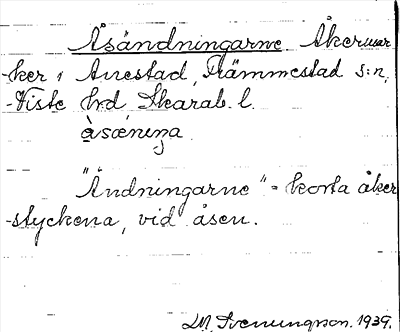 Åsändningarne Åkermar-
ker i Anestad, Främmestad s:n,
Viste hd Skarab. l.
àsænina
"Ändningarne" = korta åker-
styckena, vid åsen.
D.M. Svenungsson. 1939.